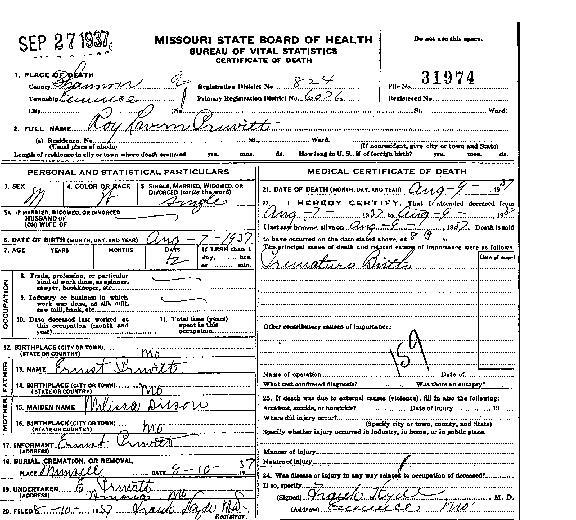 SEP 27 1937
MISSOURI STATE BOARD OF HEALTH
BUREAU OF VITAL STATISTICS
CERTIFICATE OF DEATH
Do not use this space.
1. PLACE OF DEATH
County Shannon Registration District No. 824 File No. 31974
Township Eminence Primary Registration District No. 6036 Registered No.
City No. St. Ward
2. FULL NAME Roy Pruvitt
(a) Residence. No. St. Ward.
(Usual place of abode) (If nonresident, give city or town and State)
Length of residence in city or town where death occurred yrs. mos. ds. How long in U. S., if of foreign birth? yrs. mos. ds.
PERSONAL AND STATISTICAL PARTICULARS
3. SEX M 4. COLOR OR RACE W 5. SINGLE, MARRIED, WIDOWED, OR
DIVORCED (write the word) Single
5A. IF MARRIED, WIDOWED, OR DIVORCED
HUSBAND OF
(OR) WIFE OF
6. DATE OF BIRTH (MONTH, DAY, AND YEAR) Aug-7-1937
7. AGE YEARS MONTHS DAYS If LESS than 1 day, hrs. or min.
2
OCCUPATION
8. Trade, profession, or particular
kind of work done, as spinner,
sawyer, bookkeeper, etc.
9. Industry or business in which
work was done, as silk mill,
saw mill, bank, etc.
10. Date deceased last worked at
this occupation (month and
year)
11. Total time (years)
spent in this
occupation
12. BIRTHPLACE (CITY OR TOWN)
(STATE OR COUNTRY) Mo
FATHER
13. NAME Ernest Pruvitt
14. BIRTHPLACE (CITY OR TOWN)
(STATE OR COUNTRY) Mo
MOTHER
15. MAIDEN NAME Melissa
16. BIRTHPLACE (CITY OR TOWN)
(STATE OR COUNTRY) Mo
17. INFORMANT Ernest Pruvitt
(ADDRESS)
18. BURIAL, CREMATION, OR REMOVAL
PLACE Munsell DATE 8-10-1937
19. UNDERTAKER E Pruvitt
(ADDRESS) Mo
20. FILED 8-10-1937 Frank Hyde M.D.
REGISTRAR
MEDICAL CERTIFICATE OF DEATH
21. DATE OF DEATH (MONTH, DAY, AND YEAR) Aug-9-1937
22. I HEREBY CERTIFY, That I attended deceased from
Aug-7-1937, to Aug-9-1937
I last saw h alive on Aug-9-1937 Death is said
to have occurred on the date stated above, at 8
The principal cause of death and related causes of importance were as follows:
Date of onset
Premature Birth
Other contributory causes of importance:
159
Name of operation Date of
What test confirmed diagnosis? Was there an autopsy?
23. If death was due to external causes (violence), fill in also the following:
Accident, suicide, or homicide? Date of injury 19
Where did injury occur?
(Specify city or town, county, and State)
Specify whether injury occurred in industry, in home, or in public place.
Manner of injury
Nature of injury
24. Was disease or injury in any way related to occupation of deceased?
If so, specify
(Signed) Frank Hyde M. D.
(Address) Eminence Mo.